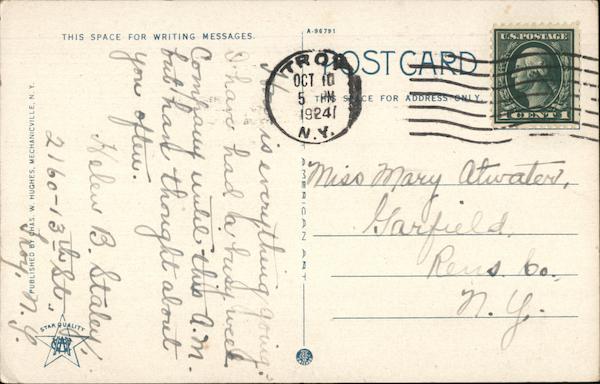 THIS SPACE FOR WRITING MESSAGES.
A-96791
POST CARD
THIS SPACE FOR ADDRESS ONLY
U.S. POSTAGE
1 CENT 1
TROY
OCT 10
5 PM
1924
N.Y.
is everything going.
I have had a busy week
Company until this A.M.
but have thought about
you often.
Helen B. Staley.
2160-13th St.
Troy, N.Y.
Miss Mary Atwater,
Garfield,
Rens. Co.,
N.Y.
PUBLISHED BY CHAS. W. HUGHES, MECHANICVILLE, N.Y.
STAR QUALITY
AMERICAN ART